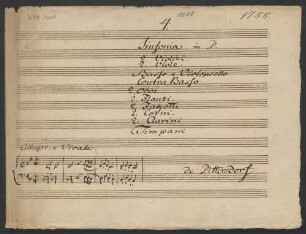 4
1788
Sinfonia in D
2 Violini
2 Viole
Basso e Violoncello
Contra Basso
2. Oboi
2 Flauti
2 Fagotti
2 Corni
2. Clarini
Timpani
Allegro e Vivace
de Dittersdorf